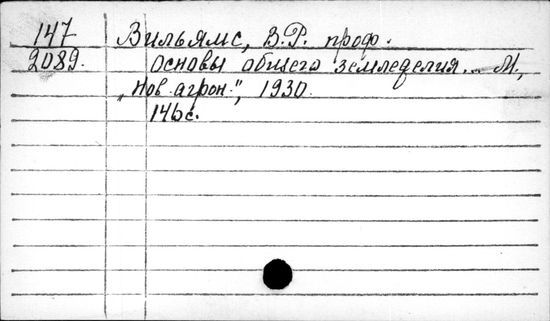 147 Вильямс, В.Р. проф.
2089. Основы общего земледелия. М.,
„Нов. агрон.", 1930.
146с.